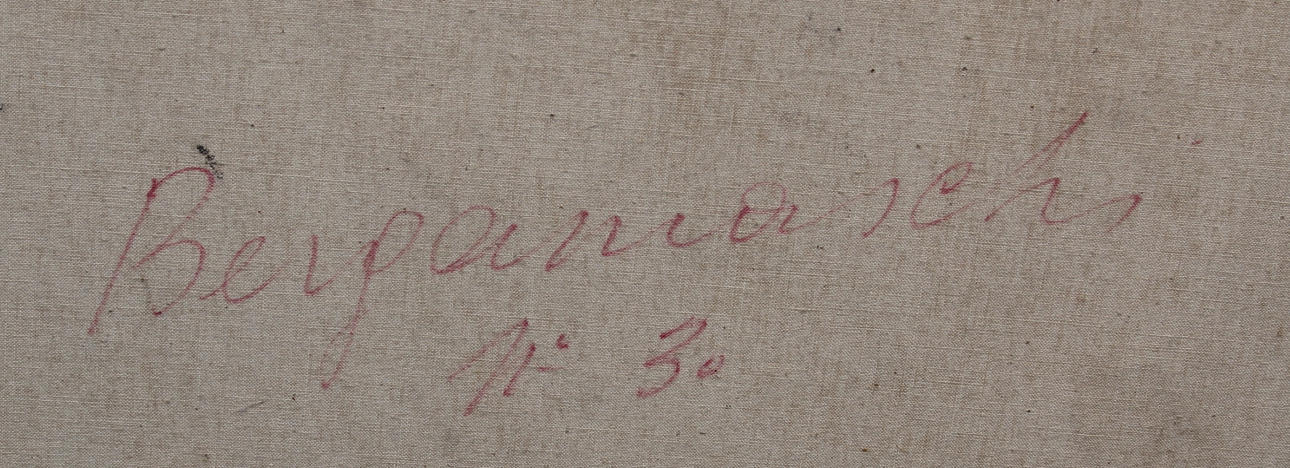 Bergamaschi
N° 30